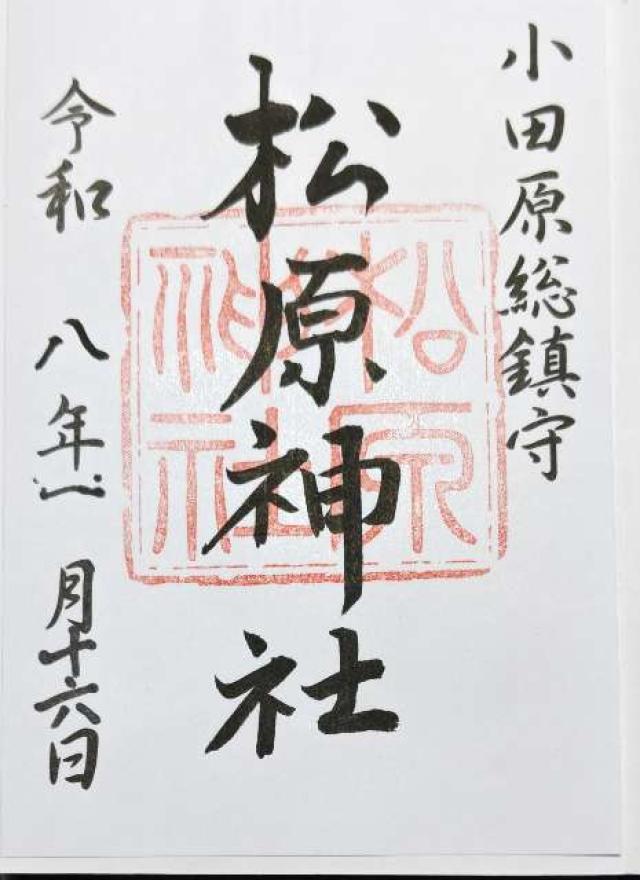 小田原総鎮守
松原神社
松原神社
令和 八年一月十六日